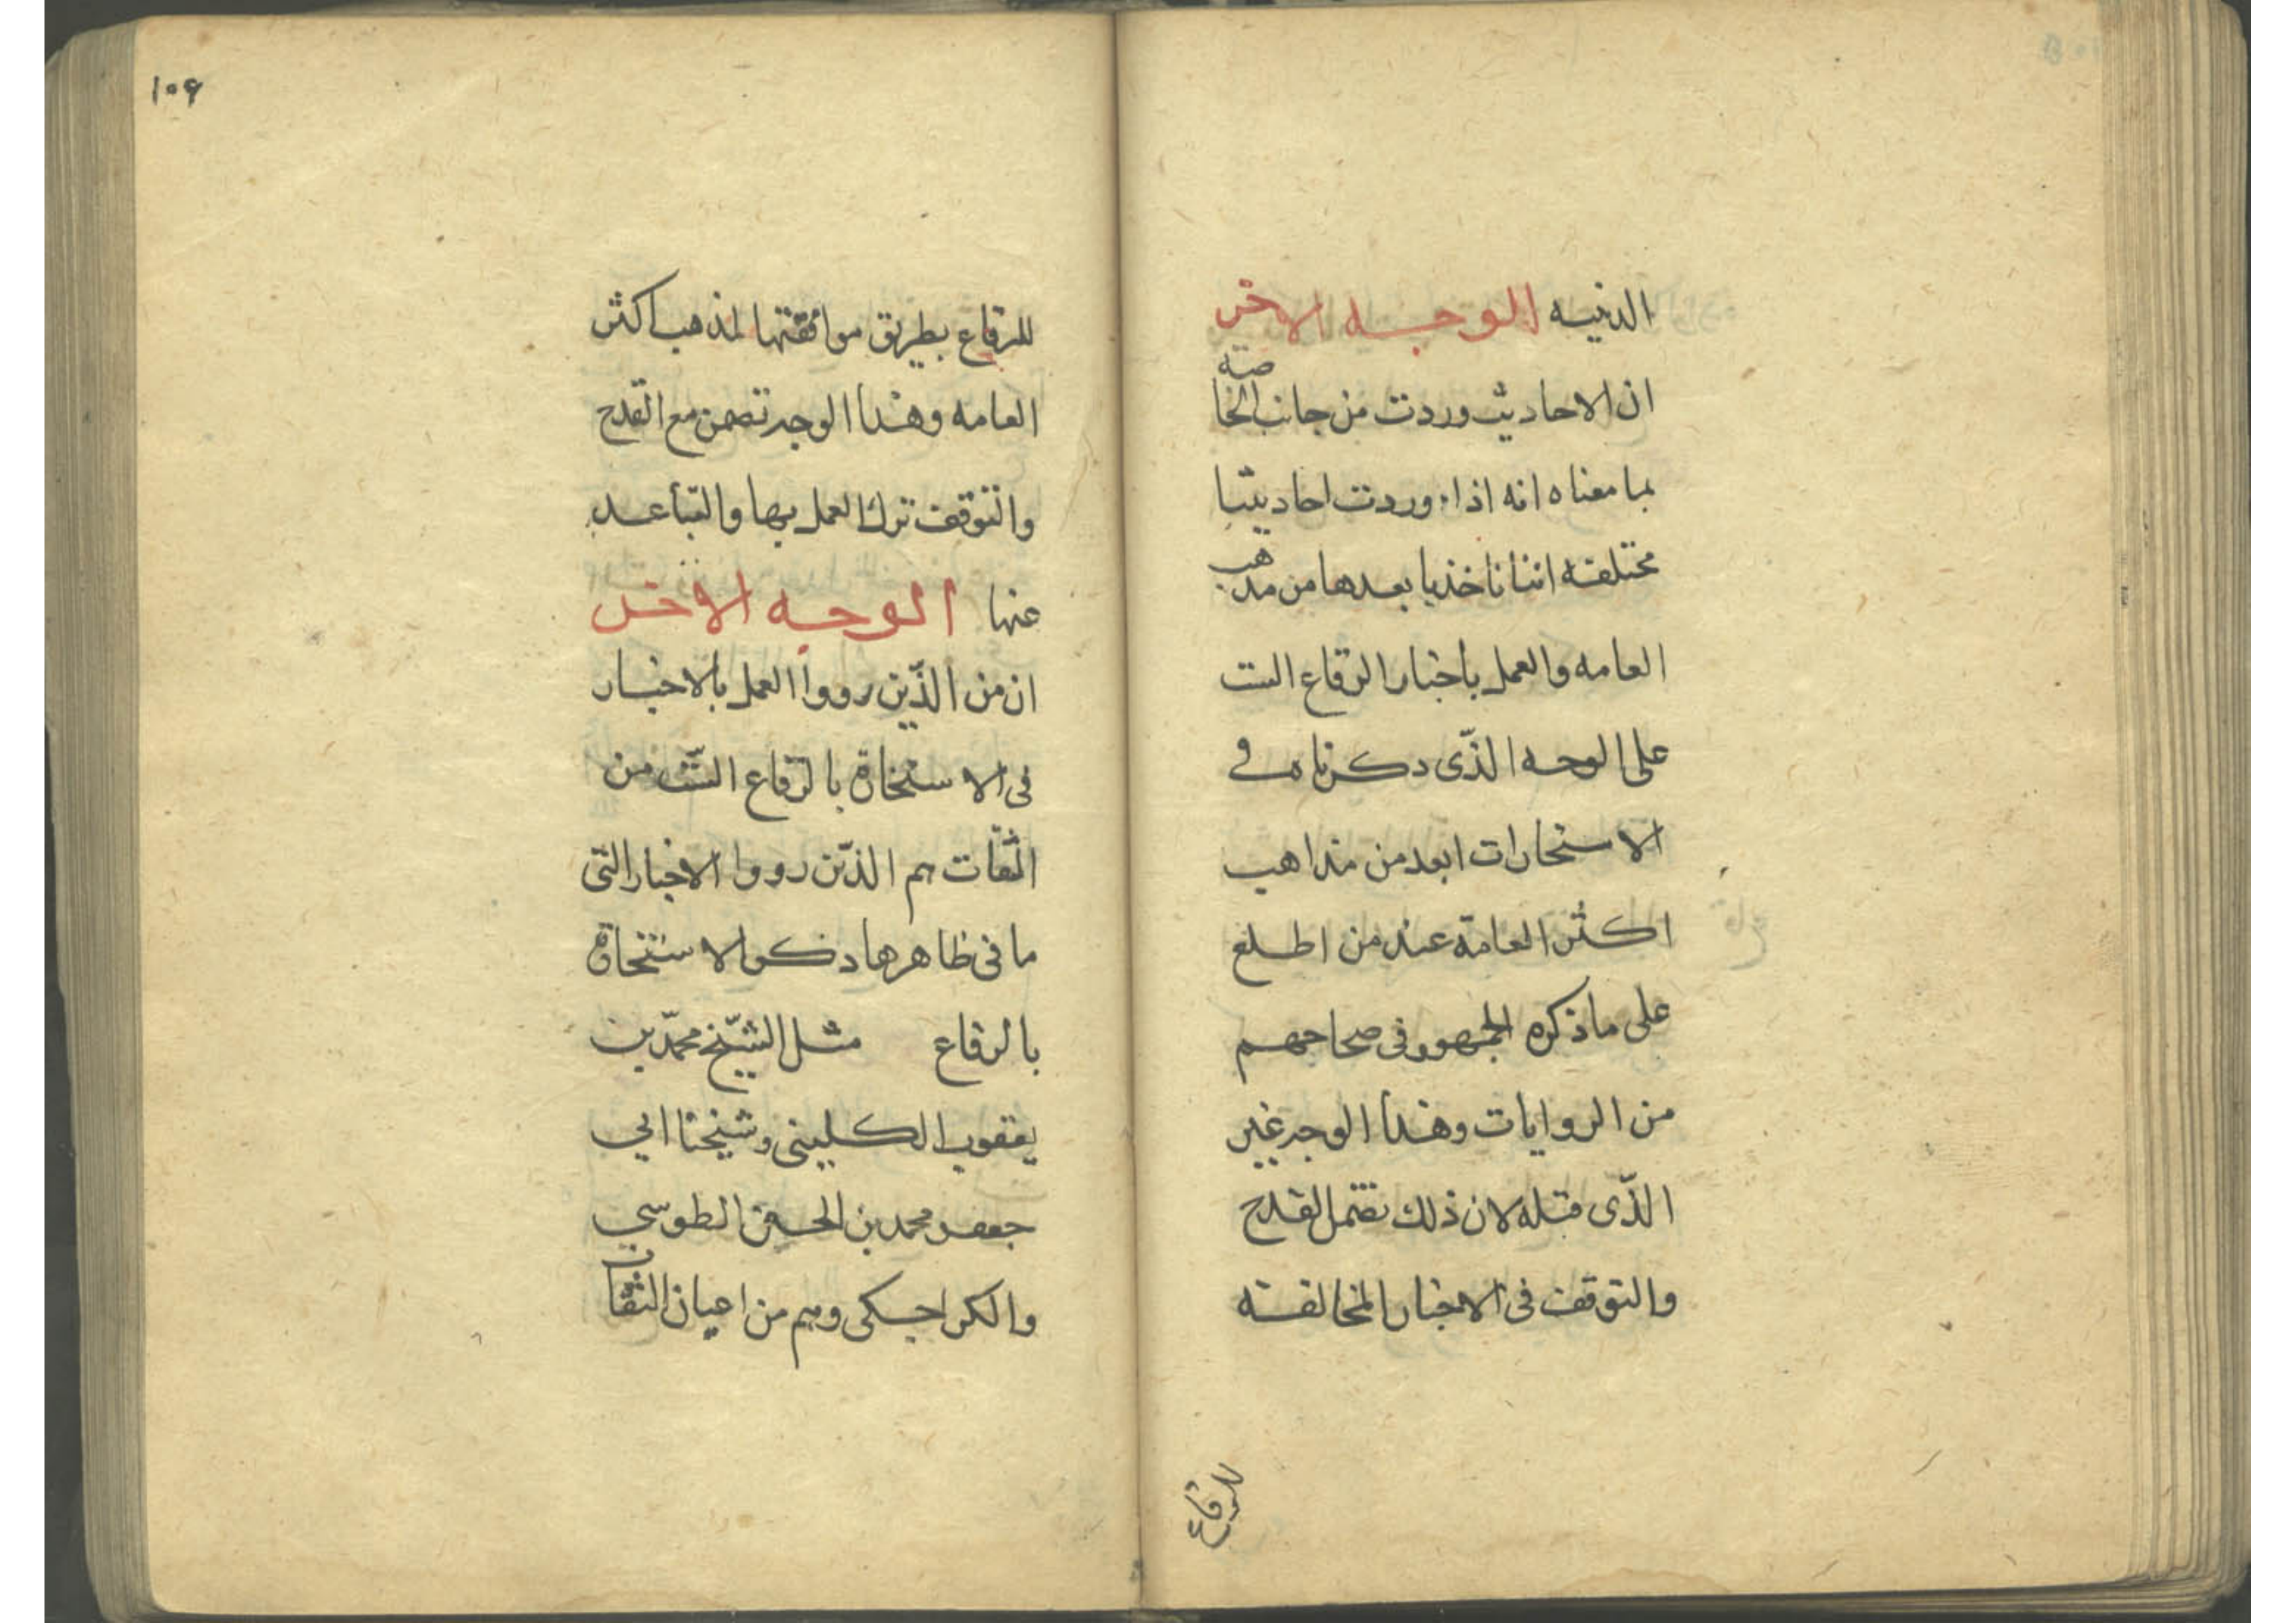 الدنيه الوجه الاخر
ان الاحاديث وردت من جانب الخاصة
بما معناه انه اذا وردت احاديثنا
مختلفه اننا ناخذ بابعدها من مذهب
العامه والعمل باخبار الرقاع الست
على الوجه الذّى دكرناه فى
الاستخارات ابعد من مذاهب
اكثر العامة عند من اطلع
على ما ذكره الجمهور فى صحاحهم
من الروايات وهذا الوجه غير
الذّى قبله لان ذلك تضمن القدح
والتوقف فى الاخبار المخالفته
للرقاع
١٠۶
للرقاع بطريق موافقتها لمذهب اكثر
العامه وهذا الوجه تضمن مع القدح
والتوقف ترك العمل بها والتباعد
عنها الوجه الاخر
ان من الذّين رووا العمل بالاخبار
فى الاستخارة بالرقاع الستّ من
الثقات هم الذّين رووا الاخبار التى
ما فى ظاهرها ذكر الاستخارة
بالرقاع مثل الشيّخ محمّد بن
يعقوب الكلينى وشيخنا ابي
جعفر محمد بن الحسن الطوسي
والكراجكى وهم من اعيان الثقات